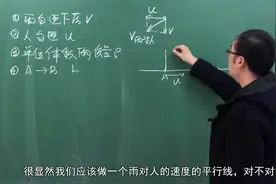 ① 雨匀速下落 V
② 人匀速 u
③ 单位体积雨质量 ρ
④ A → B L
u
V
V雨对人
A
u
很显然我们应该做一个雨对人的速度的平行线，对不对